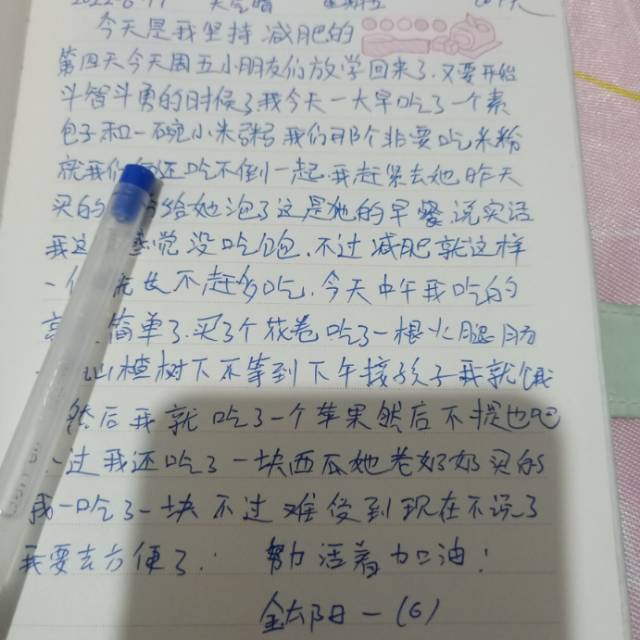 今天是我坚持减肥的
第四天今天周五小朋友们放学回来了.又要开始
斗智斗勇的时候了我今天一大早吃了一个素
包子和一碗小米粥我们那个非要吃米粉
就我们 还吃不倒一起.我赶紧去她昨天
买的 给她泡了这是她的早餐.说实话
我这 觉没吃饱.不过减肥就这样
一 不赶多吃.今天中午我吃的
简单了.买了个花卷吃了一根火腿肠
山楂树下不等到下午接孩子我就饿
然后我就吃了一个苹果然后不提也吧
过我还吃了一块西瓜她老奶奶买的
我一吃了一块不过难受到现在不说了
我要去方便了: 努力活着加油!